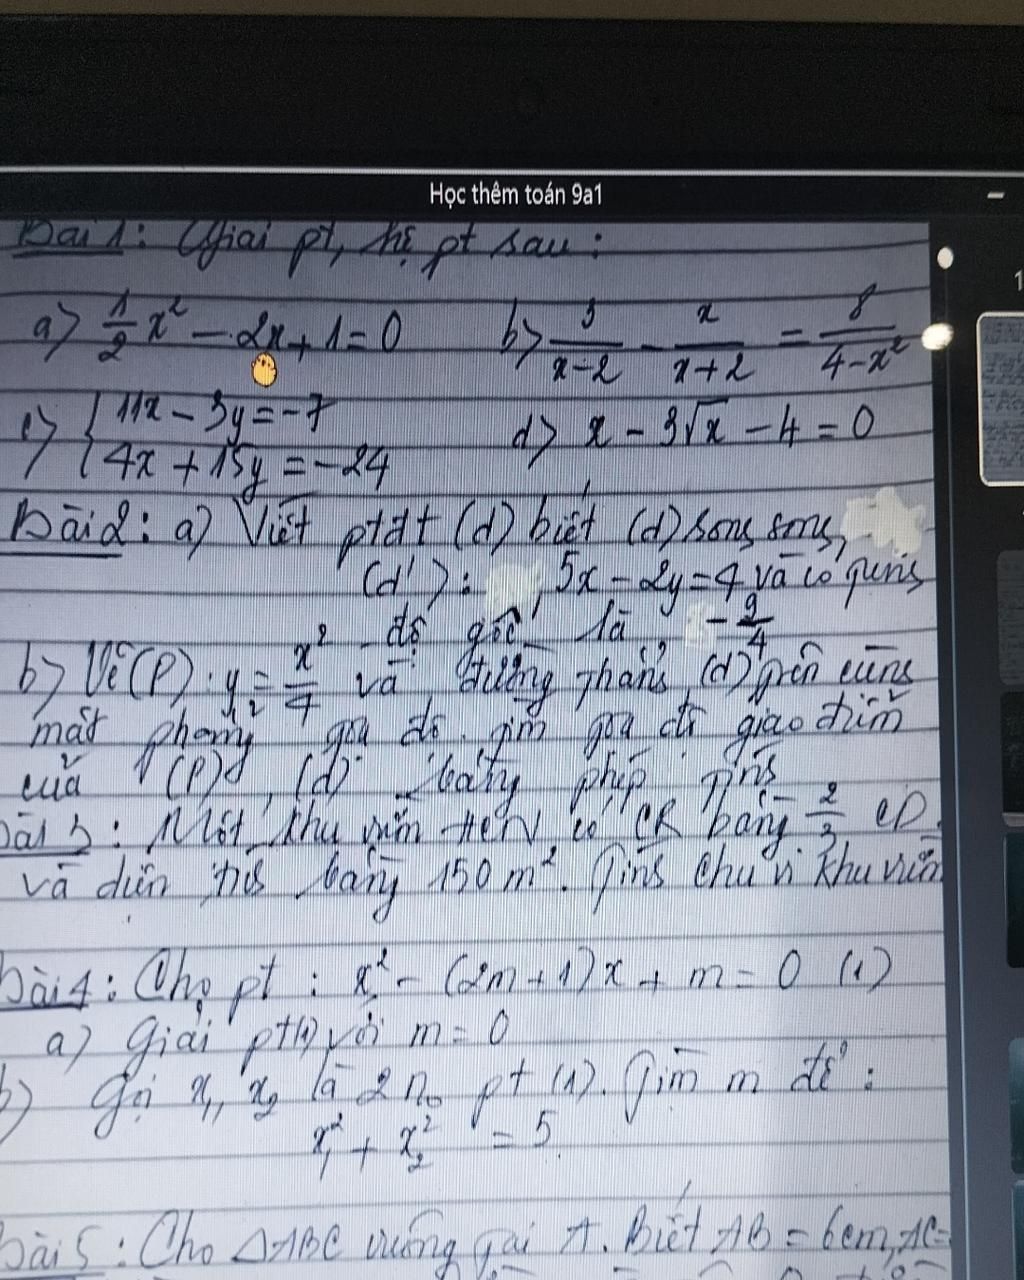 Học thêm toán 9a1
Bài 1: Giải pt, hệ pt sau:
a) 1/2 x² - 2x + 1 = 0 b) 3/(x-2) - x/(x+2) = 8/(4-x²)
c) { 11x - 3y = -7 d) x - 3√x - 4 = 0
4x + 15y = -24
Bài 2: a) Viết ptđt (d) biết (d) song song
(d'): 5x - 2y = 4 và có tung
độ gốc là -9/4
b) Vẽ (P): y = x²/4 và đường thẳng (d) trên cùng
mặt phẳng toạ độ. Tìm toạ độ giao điểm
của (P), (d) bằng phép tính
Bài 3: Một khu vườn HCN có CR bằng 2/3 CD
và diện tích bằng 150 m². Tính chu vi khu vườn
Bài 4: Cho pt: x² - (2m + 1)x + m = 0 (1)
a) Giải pt(1) với m = 0
b) Gọi x₁, x₂ là 2 n₀ pt (1). Tìm m để:
x₁² + x₂² = 5
Bài 5: Cho ΔABC vuông tại A. Biết AB = 6cm, AC =
1